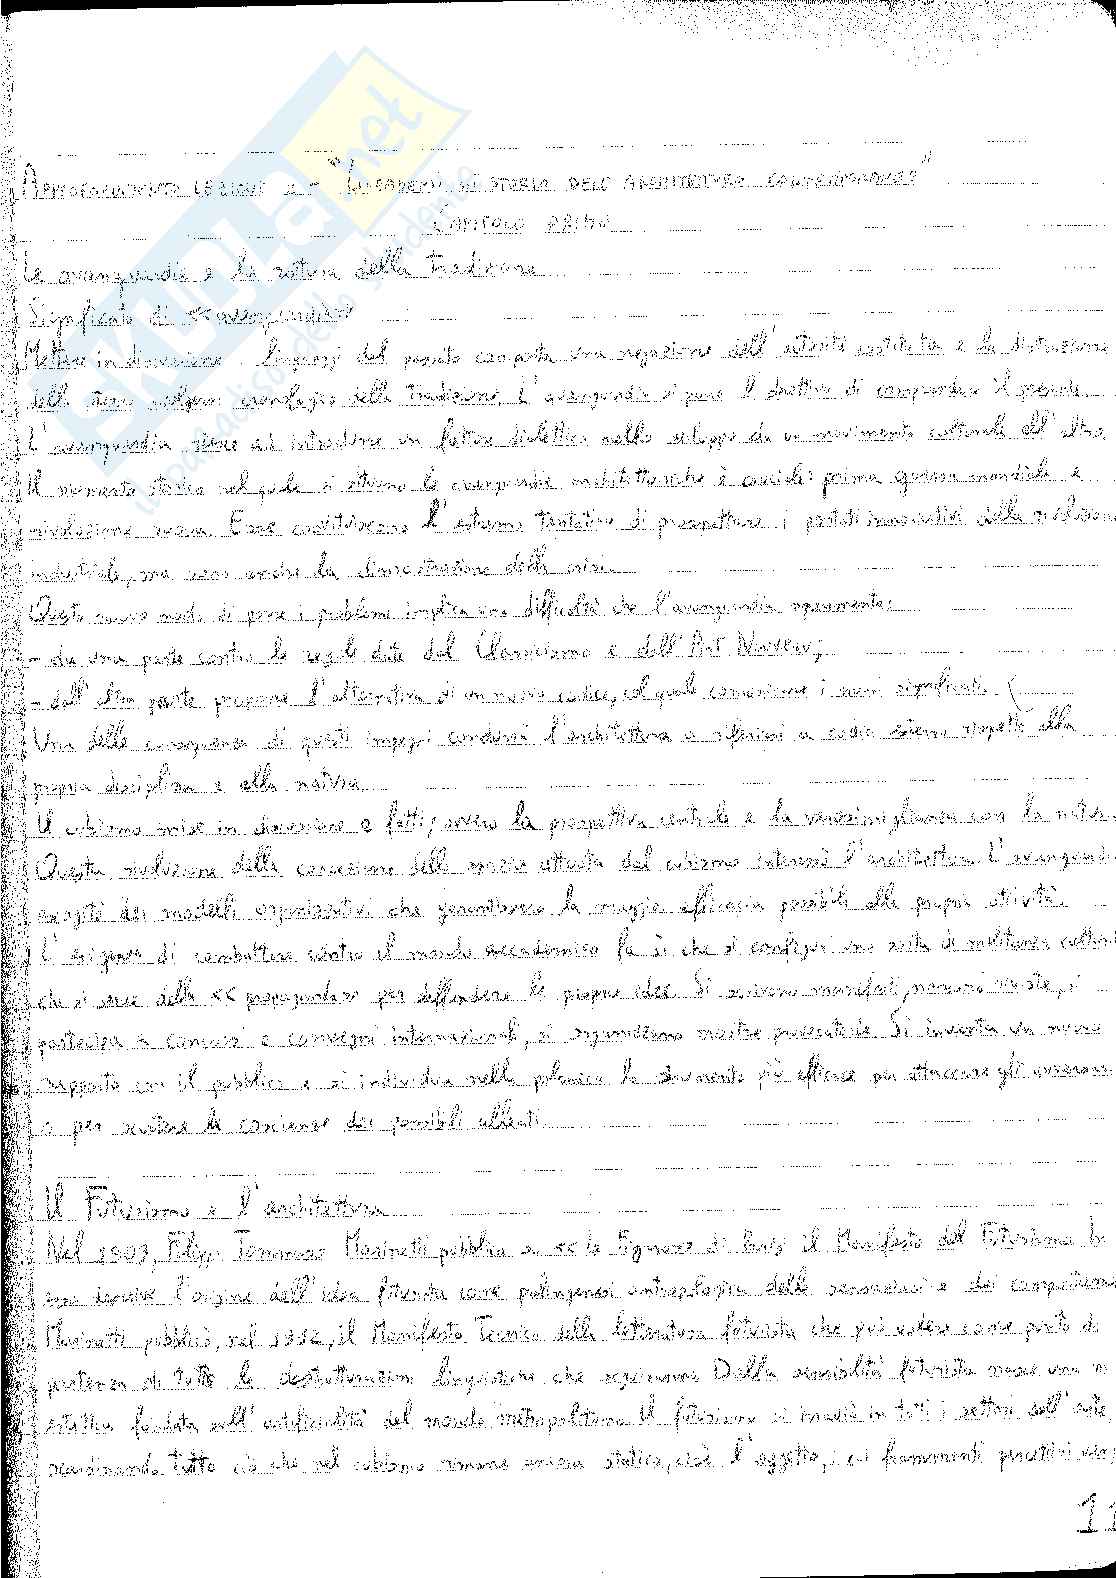 SKUOLA.net
"Quaderni di storia dell'architettura contemporanea"
CAPITOLO PRIMO
Le avanguardie e la rottura della tradizione
Significato di <<avanguardia>>
Mettere in discussione i linguaggi del passato comporta una negazione dell'autorità costituita e la distruzione
della tradizione. L'avanguardia si pone l'obiettivo di comprendere il presente.
L'avanguardia riesce ad introdurre un fattore dialettico nello sviluppo da un movimento culturale all'altro.
Il momento storico nel quale si attuano le avanguardie architettoniche è cruciale: prima guerra mondiale e
rivoluzione russa. Esse costituiscono l'estremo tentativo di prospettare i portati innovativi della rivoluzione
industriale, ma sono anche la dimostrazione della crisi.
Questo nuovo modo di porre i problemi implica una difficoltà che l'avanguardia
- da una parte contro le regole date dal Classicismo e dall'Art Nouveau;
- dall'altra parte propone l'alternativa di un nuovo codice, col quale comunicare i nuovi significati.
Una delle conseguenze di questi impegni condurrà l'architettura a riferirsi a codici esterni rispetto alla
propria disciplina e alla natura.
Il cubismo mise in discussione la prospettiva centrale e la verosimiglianza con la natura.
Questa rivoluzione della concezione dello spazio attuata dal cubismo interessò l'architettura. L'avanguardia
dei modelli organizzativi che garantivano la maggior efficacia possibile alle proprie attività.
L'esigenza di combattere contro il mondo accademico fa sì che si configuri una sorta di militanza culturale
che si serve della <<propaganda>> per diffendere le proprie idee. Si scrivono manifesti, nascono riviste, si
partecipa a concorsi e convegni internazionali, si organizzano mostre Si inventa un nuovo
rapporto con il pubblico e si individua nella polemica lo strumento più efficace per attaccare gli avversari
o per scuotere le coscienze dei possibili alleati.
Il Futurismo e l'architettura
Nel 1909, Filippo Tommaso Marinetti pubblica su <<le Figaro>> di Parigi il Manifesto del Futurismo. In
esso descrive l'origine dell'idea futurista come palingenesi antropologica delle sensazioni e dei comportamenti.
Marinetti pubblicò, nel 1912, il Manifesto Tecnico della letteratura futurista che può valere come punto di
partenza di tutte le destrutturazioni linguistiche che seguiranno. Dalla sensibilità futurista nasce una n
estetica fondata sull'artificialità del mondo metropolitano. Il futurismo si irradiò in tutti i settori dell'arte
scardinando tutto ciò che nel cubismo rimane ancora statico, cioè l'oggetto, i cui frammenti
11